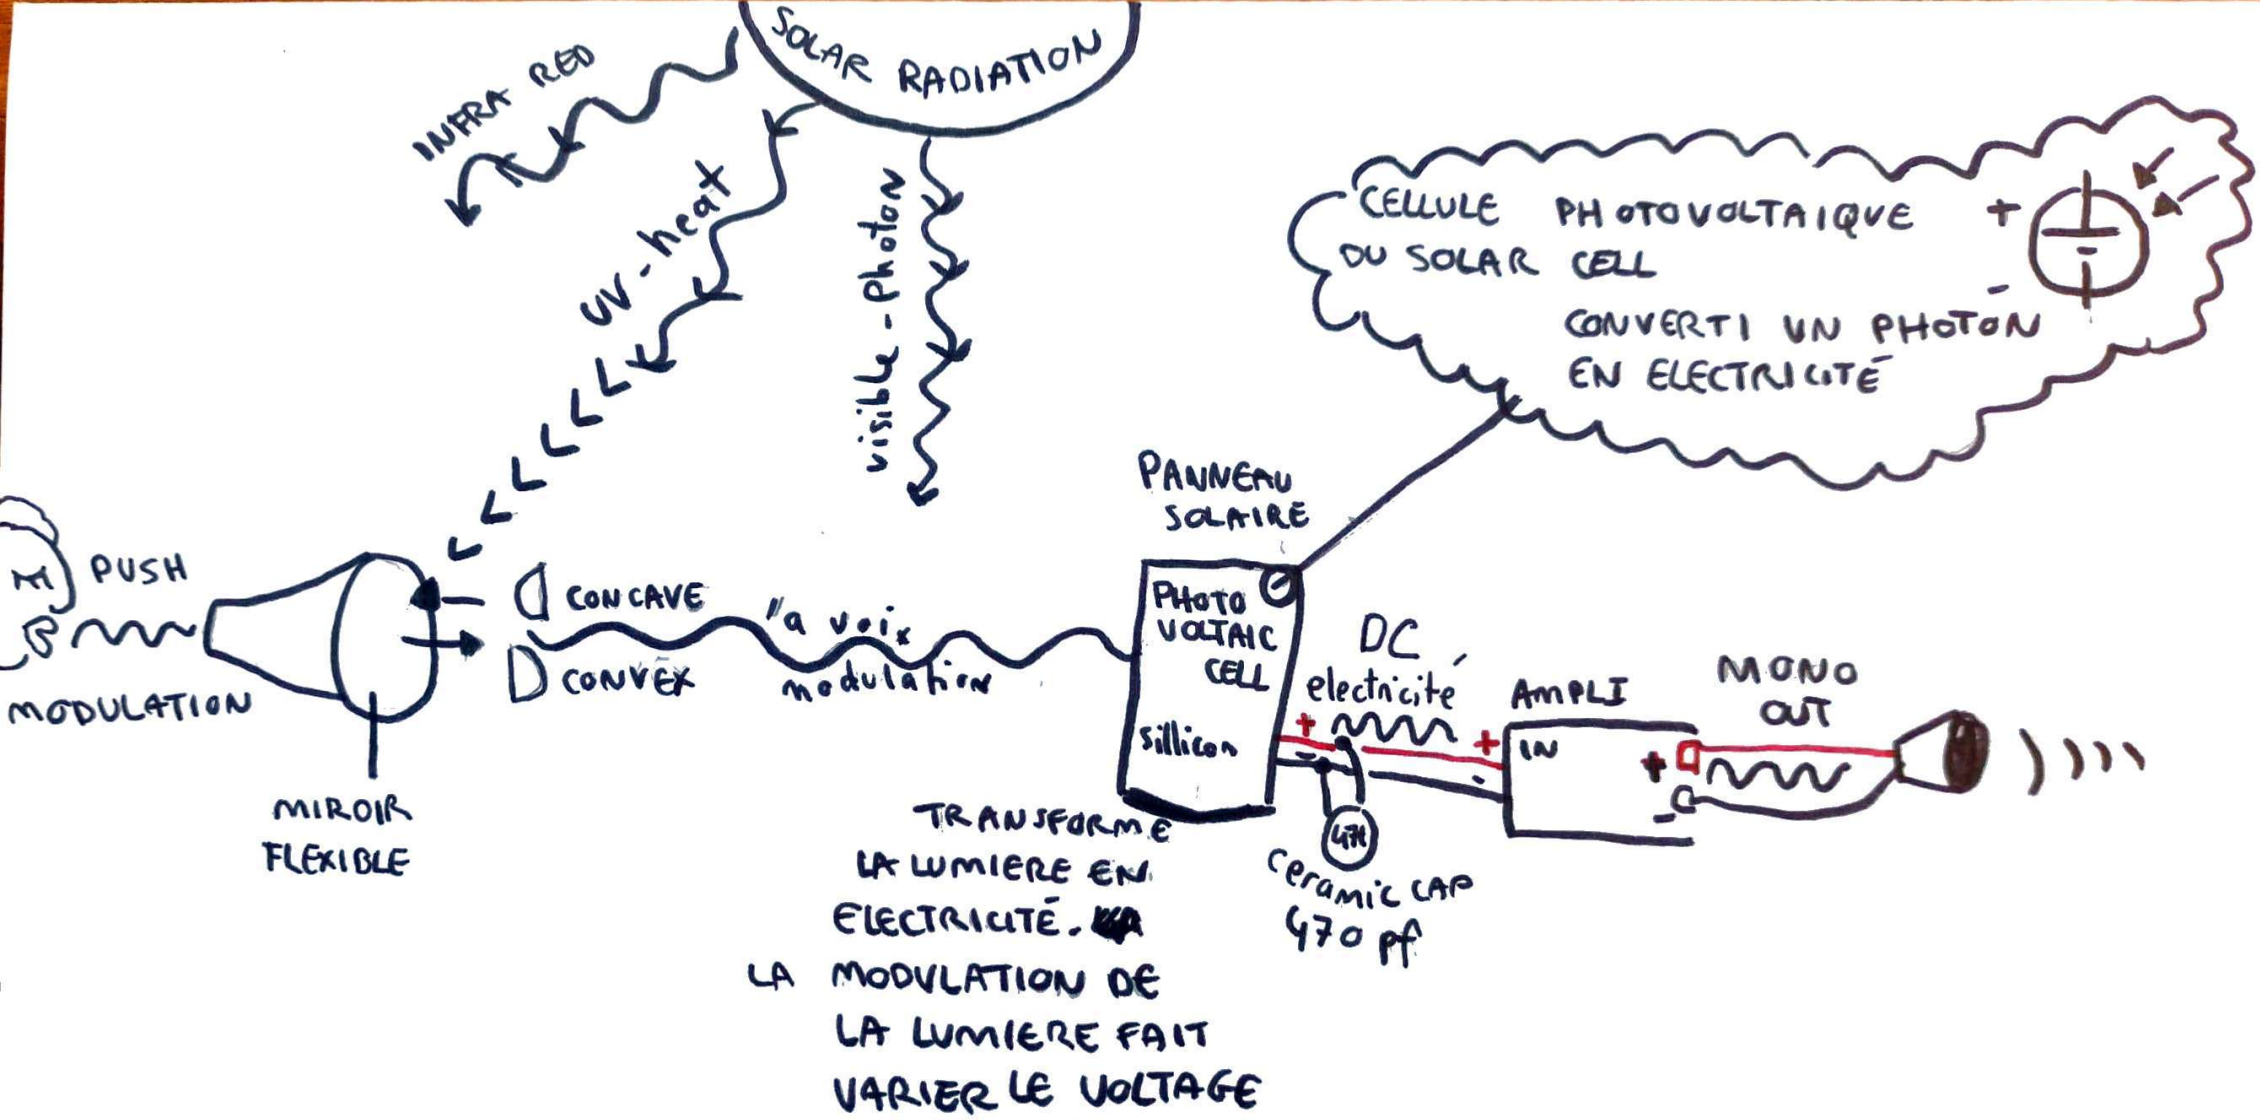 SOLAR RADIATION
INFRA RED
UV-heat
visible-photon
CELLULE PHOTOVOLTAIQUE
OU SOLAR CELL
CONVERTI UN PHOTON
EN ELECTRICITÉ
+
-
PANNEAU
SOLAIRE
PUSH
MODULATION
MIROIR
FLEXIBLE
CONCAVE
CONVEX
la voix
modulation
PHOTO
VOLTAIC
CELL
Sillicon
DC
electricité
+
-
+
-
AMPLI
IN
MONO
OUT
+
-
471
ceramic CAP
470 pf
TRANSFORME
LA LUMIERE EN
ELECTRICITÉ.
LA MODULATION DE
LA LUMIERE FAIT
VARIER LE VOLTAGE